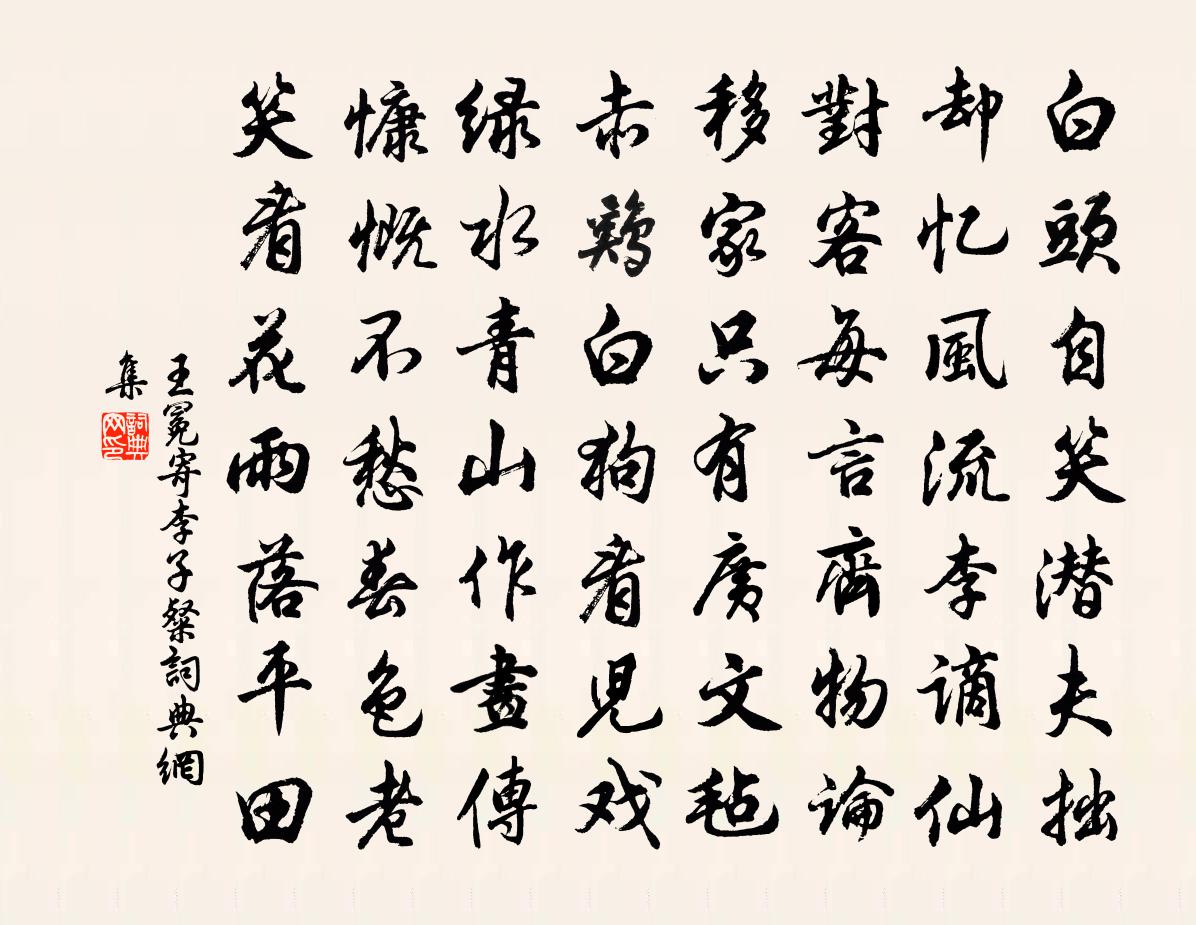 白頭自笑潜夫拙
却忆風流李谪仙
對客每言齊物論
移家只有廣文毡
赤鷄白狗看兒戏
绿水青山作畫傳
慷慨不愁春色老
笑看花雨落平田
王冕寄李子粲詞典網
集
詞典
网印